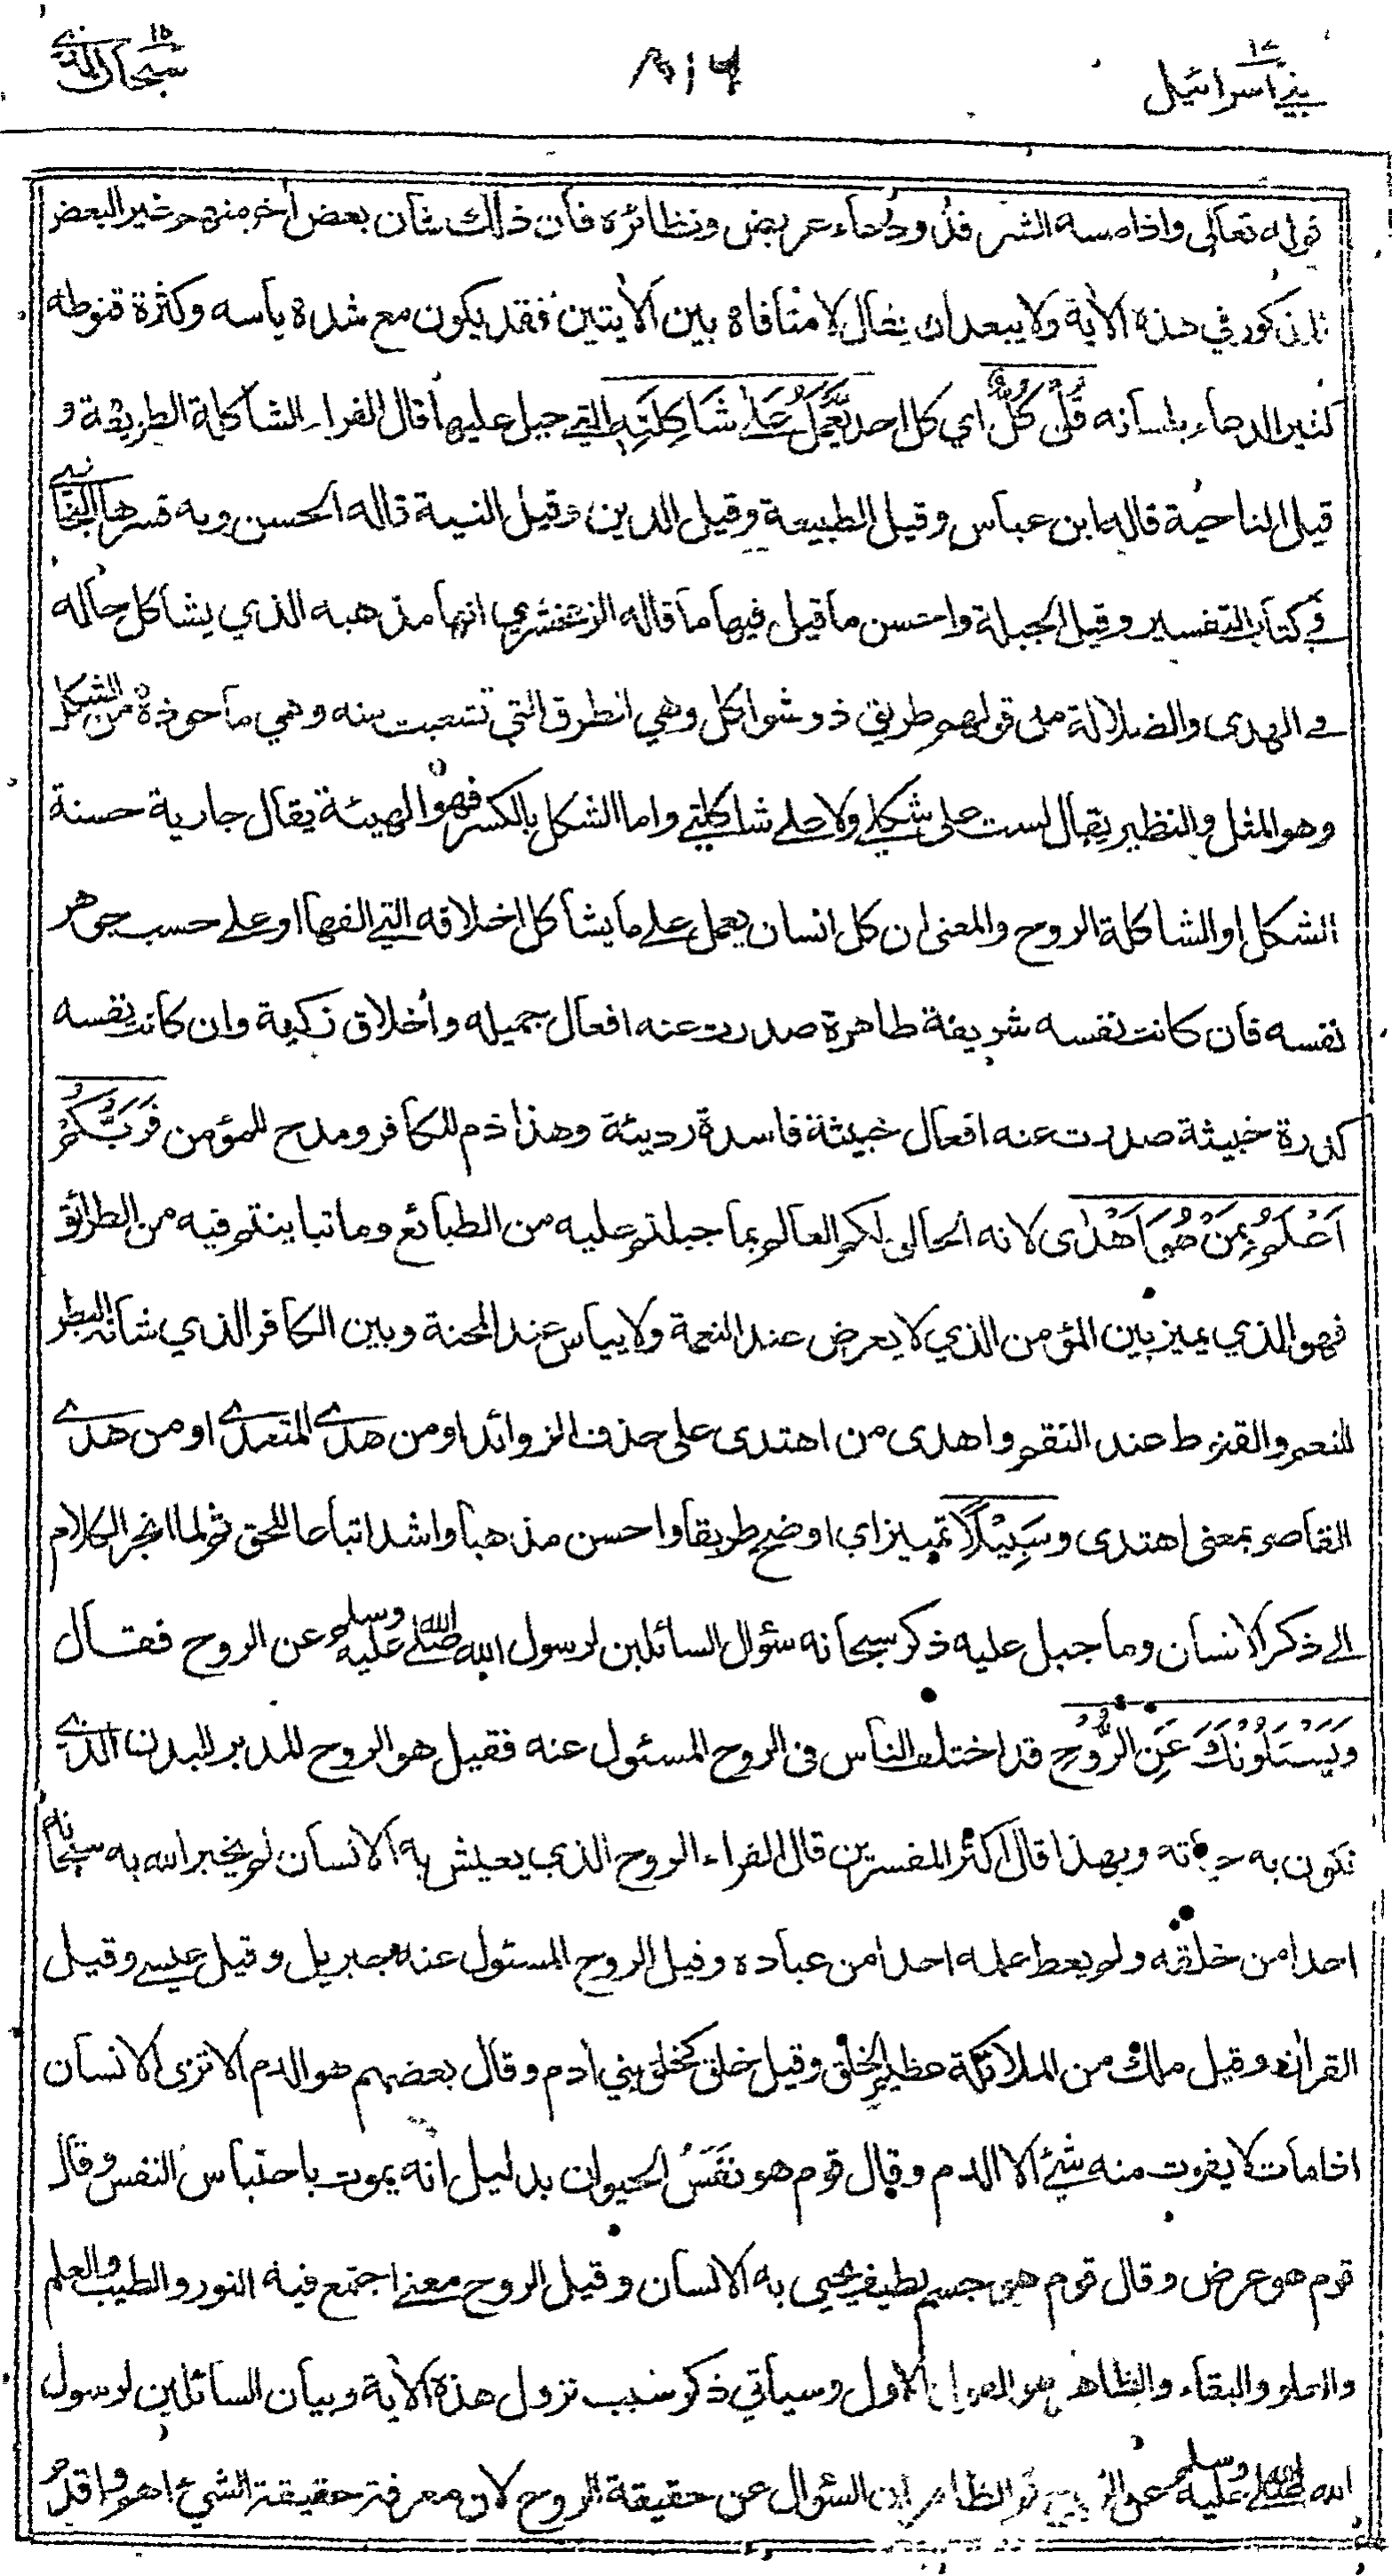 بني اسرائيل ١٧
٨١٦
سبحان الذي ١٥
قوله تعالى واذا مسه الشر فذو دعاء عريض ونظائره فان ذلك شأن بعض أخر منهم غير البعض
المذكور في هذه الأية ولا يبعد ان يقال لا منافاة بين الأيتين فقد يكون مع شدة يأسه وكثرة قنوطه
كثير الدعاء بلسانه قُلْ كُلٌّ اي كل احد يَّعْمَلُ عَلٰى شَاكِلَتِهٖ التي جبل عليها قال الفراء الشاكلة الطريقة و
قيل الناحية قاله ابن عباس وقيل الطبيعة وقيل الدين وقيل النية قاله الحسن وبه فسرها البخاري
في كتاب التفسير وقيل الجبلة واحسن ما قيل فيها ما قاله الزمخشري انها مذهبه الذي يشاكل حاله
في الهدى والضلالة من قولهم طريق ذو شواكل وهي الطرق التي تشعبت منه وهي مأخوذة من الشكل
وهو المثل والنظير يقال لست على شكلي ولا على شاكلتي واما الشكل بالكسر فهو الهيئة يقال جارية حسنة
الشكل او الشاكلة الروح والمعنى ان كل انسان يعمل على ما يشاكل اخلاقه التي الفها او على حسب جوهر
نفسه فان كانت نفسه شريفة طاهرة صدرت عنه افعال جميله وأخلاق زكية وان كانت نفسه
كدرة خبيثة صدرت عنه افعال خبيثة فاسدة رديئة وهذا ذم للكافر ومدح للمؤمن فَرَبُّكُمْ
اَعْلَمُ بِمَنْ هُوَ اَهْدٰى لانه الخالق لكم العالم بما جبلتم عليه من الطبائع وما تباينتم فيه من الطرائق
فهو الذي يميز بين المؤمن الذي لا يعرض عند النعمة ولا ييأس عند المحنة وبين الكافر الذي شانه البطر
للنعم والقنوط عند النقم واهدى من اهتدى على حذف الزوائد او من هدى المتعدي او من هدى
القاصر بمعنى اهتدى وسَبِيْلًا تمييز اي اوضح طريقا واحسن مذهبا واشد اتباعا للحق ثم لما انجر الكلام
الى ذكر الانسان وما جبل عليه ذكر سبحانه سؤال السائلين لرسول الله صلى الله عليه وسلم عن الروح فقال
وَيَسْئَلُوْنَكَ عَنِ الرُّوْحِ قد اختلف الناس في الروح المسئول عنه فقيل هو الروح المدبر للبدن الذي
تكون به حياته وبهذا قال اكثر المفسرين قال الفراء الروح الذي يعيش به الانسان لم يخبر الله به سبحانه
احدا من خلقه ولم يعط علمه احدا من عباده وقيل الروح المسئول عنه جبريل وقيل عيسى وقيل
القران وقيل ملك من الملائكة عظيم الخلق وقيل خلق كخلق بني أدم وقال بعضهم هو الدم الا ترى الانسان
اذا مات لا يفوت منه شئ الا الدم وقال قوم هو نَفَسُ الحيوان بدليل انه يموت باحتباس النفس وقال
قوم هو عرض وقال قوم هو جسم لطيف يحيى به الانسان وقيل الروح معنى اجتمع فيه النور والطيب والعلم
والعلو والبقاء والظاهر هو القول الاول وسيأتي ذكر سبب نزول هذه الأية وبيان السائلين لرسول
الله صلى الله عليه وسلم عن الروح ثم الظاهر ان السؤال عن حقيقة الروح لان معرفة حقيقة الشئ اهم واقدم